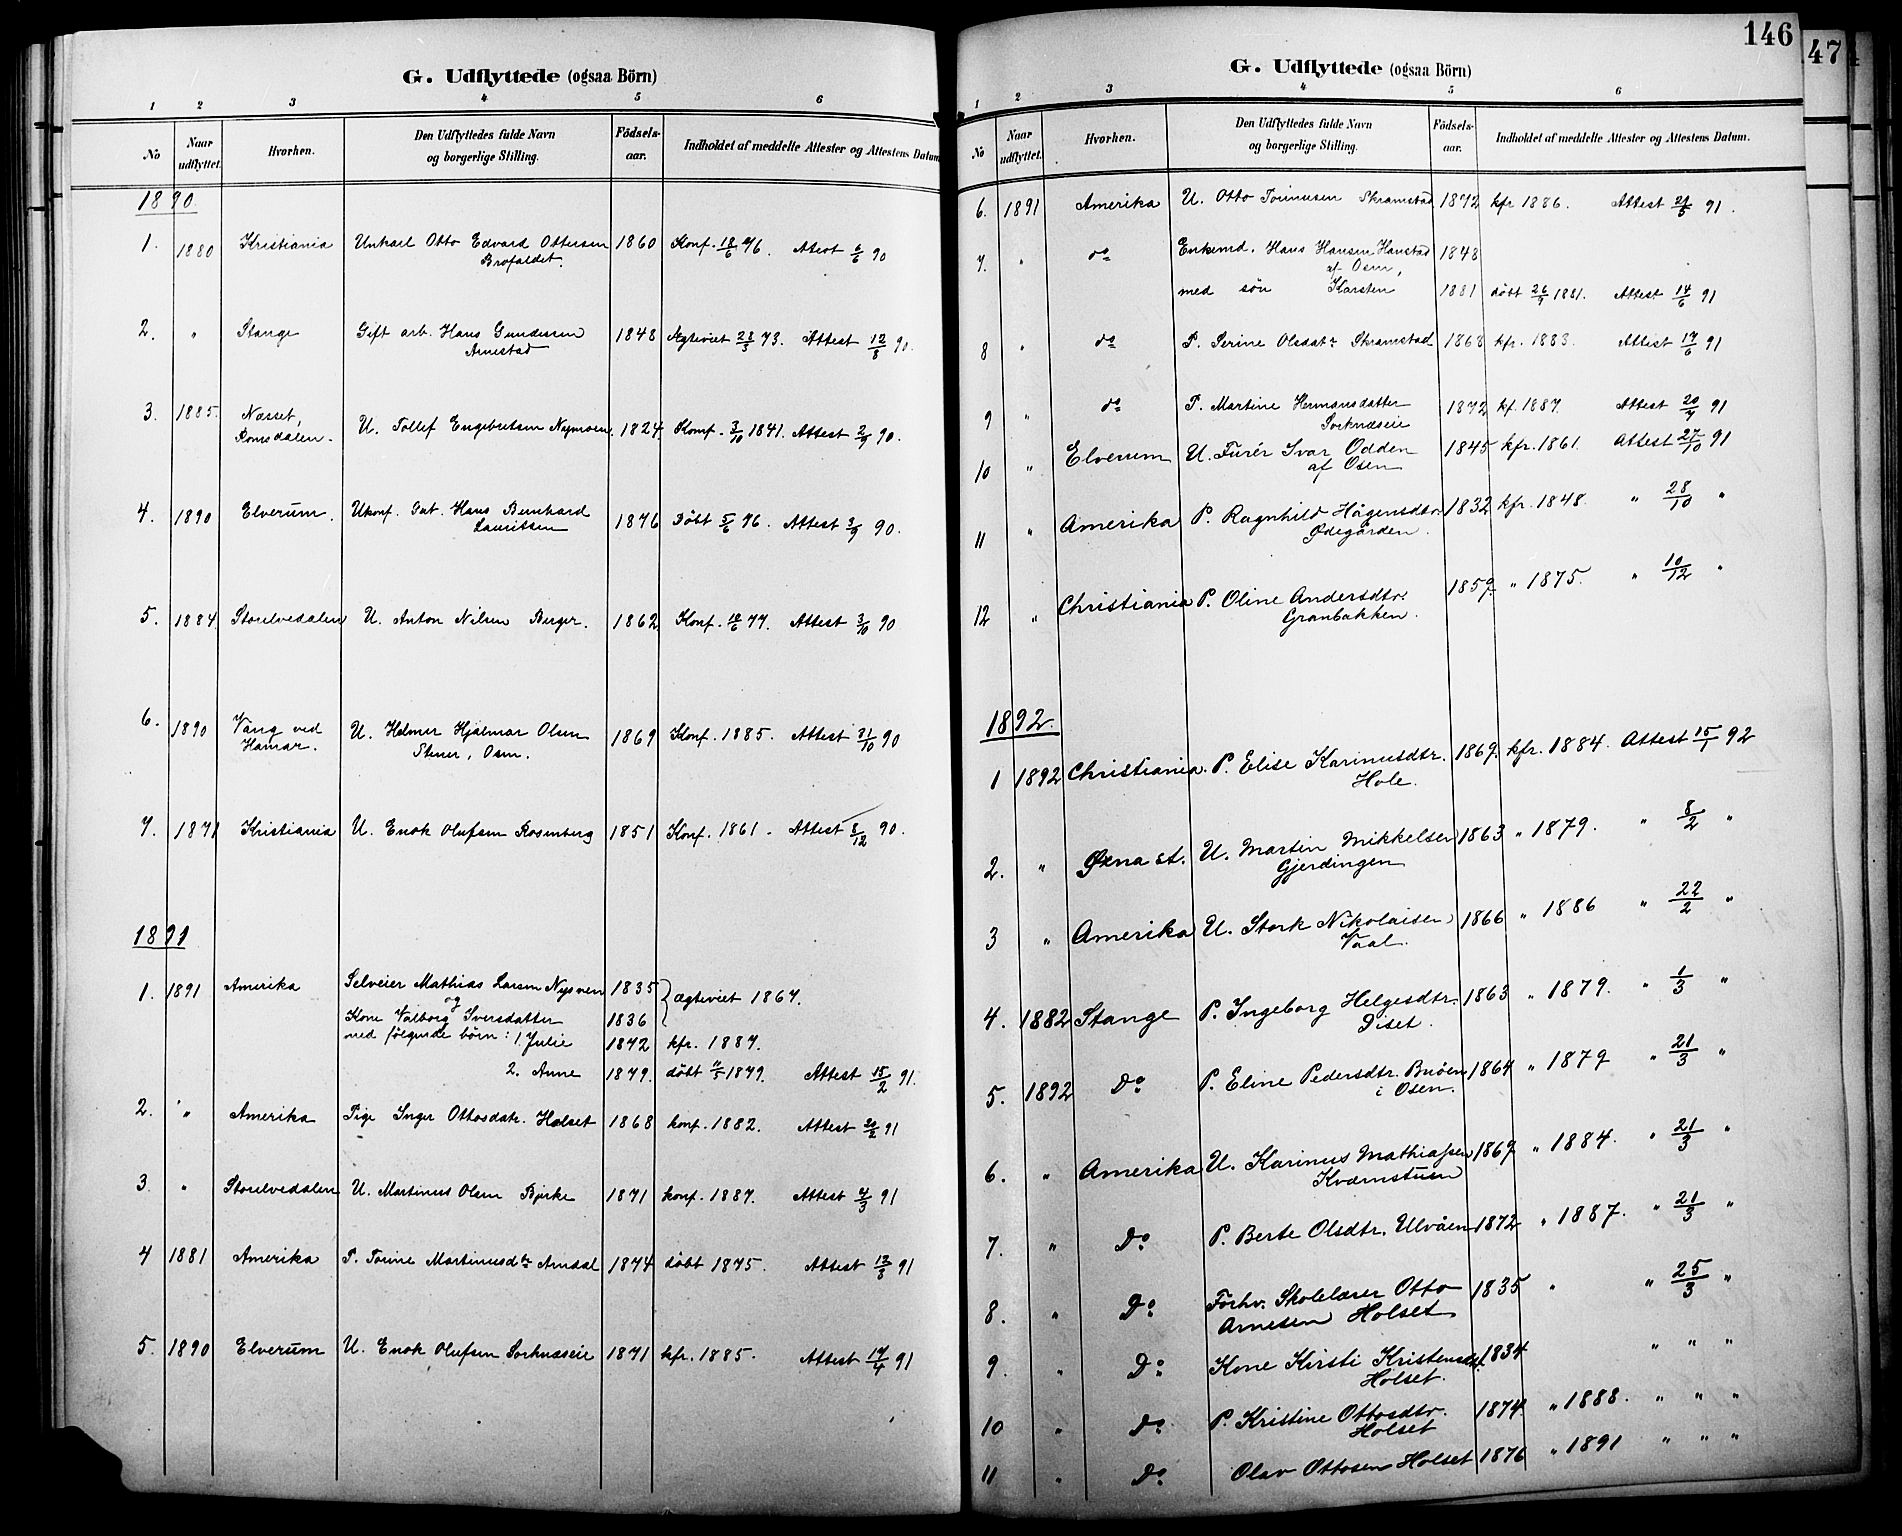 G. Udflyttede (ogsaa Börn)
1 2 3 4 5 6
No Naar udflyttet. Hvorhen. Den Udflyttedes fulde Navn og borgerlige Stilling. Födsels-aar. Indholdet af meddelte Attester og Attestens Datum
1890.
1. 1880 Kristiania Unkarl Otto Edvard Ottersen 1860 Konf. 18/6 76. Attest 6/6 90
Brofaldet.
2. " Stange Gift arb. Hans Gundersen 1848 Ægteviet 28/3 73. Attest 12/8 90.
Arnestad
3. 1885. Næsset, Romsdalen. U. Tollef Engebretsen Nymoen. 1824 Konf. 3/10 1841. Attest 2/9 90.
4. 1890 Elverum. Ukonf. Gut. Hans Bernhard 1876 Döbt 5/6 76. Attest 3/9 90.
Lauritsen
5. 1884 Storelvedalen U. Anton Nilsen Berger. 1862 Konf. 10/6 77. Attest 3/10 90
6. 1890 Vang ved Hamar. U. Helmer Hjalmar Olsen 1869 Konf. 1885. Attest 31/10 90
Stener, Osen.
7. 1871 Kristiania U. Enok Olufsen Rosenberg 1851 Konf. 1861. Attest 8/12 90.
1891
1. 1891 Amerika Selveier Mathias Larsen Nysven 1835 } ægteviet 1864.
og
Kone Valborg Iversdatter 1836
med følgende børn: 1. Julie 1872 kfr. 1887.
2. Anne 1879. døbt 11/5 1879. Attest 15/2 91.
2. " Amerika Pige Inger Ottosdatr. Holset 1868 konf. 1882. Attest 20/2 91
3. " Storelvedalen U. Martinus Olsen Bjørke 1871 konf. 1887. Attest 4/3 91
4 1881 Amerika P. Torine Martinusdtr Arndal 1874 döbt 1875. Attest 13/3 91
5. 1890 Elverum U. Enok Olufsen Sorknæseie 1871 kfr. 1885. Attest 14/4 91
146
47
G. Udflyttede (ogsaa Börn)
1 2 3 4 5 6
No Naar udflyttet. Hvorhen. Den Udflyttedes fulde Navn og borgerlige Stilling. Födsels-aar. Indholdet af meddelte Attester og Attestens Datum.
6. 1891 Amerika U. Otto Torinusen Skramstad 1872 kfr 1886. Attest 21/5 91.
7. " do Enkemd. Hans Hansen Hanstad 1848
af Osen,
med søn Karsten 1881 döbt 26/7 1881. Attest 14/6 91
8 " do P. Serine Olsdatr Skramstad 1868 kfr. 1883. Attest 17/6 91
9 " do P. Martine Hermansdatter 1872 kf. 1887. Attest 20/7 91
Sorknæseie
10 " Elverum U. Furér Ivar Odden 1845 kfr. 1861. Attest 27/10 91
af Osen
11 " Amerika P. Ragnhild Hågensdtr. 1832 kfr. 1848. " 28/10 "
Ødegården.
12 " Christiania P. Oline Andersdtr. 1859 " 1875. " 10/12 "
Granbakken.
1892.
1 1892 Christiania. P. Elise Karinusdtr. 1869. kfr. 1884. Attest 15/1 92
Hole.
2. " Øxna st. U. Martin Mikkelsen 1863 " 1879. " 8/2 "
Gjerdingen
3 " Amerika U. Stork Nikolaisen 1866 " 1886 " 22/2 "
Vaal.
4. 1882 Stange P. Ingeborg Helgesdtr. 1863 " 1879. " 1/3 "
Diset.
5. 1892 Do P. Eline Pedersdtr. Bruöen 1864 " 1879 " 21/3 "
i Osen.
6. " Amerika U. Karinus Mathiassen 1869 " 1884. " 21/3 "
Kværnstuen
7. " Do P. Berte Olsdtr. Ulvåen 1872 " 1887. " 21/3 "
8. " Do Forhv. Skolelærer Otto 1835 " " 25/3 "
Arnesen Holset
9. " Do Kone Kirsti Kristensdtr. 1834 " " "
Holset.
10 " Do P. Kristine Ottosdtr. 1874 " 1888. " " "
Holset
11 " Do Olav Ottosen Holset 1876 " 1891 " " "